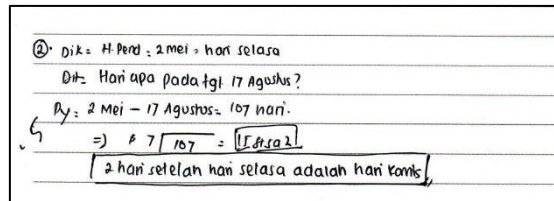 ②. Dik = H. Pend : 2 mei = hari selasa
Dit = Hari apa pada tgl 17 Agustus?
Dy = 2 Mei - 17 Agustus = 107 hari.
=) 7 107 = 15 sisa 2
2 hari setelah hari selasa adalah hari kamis